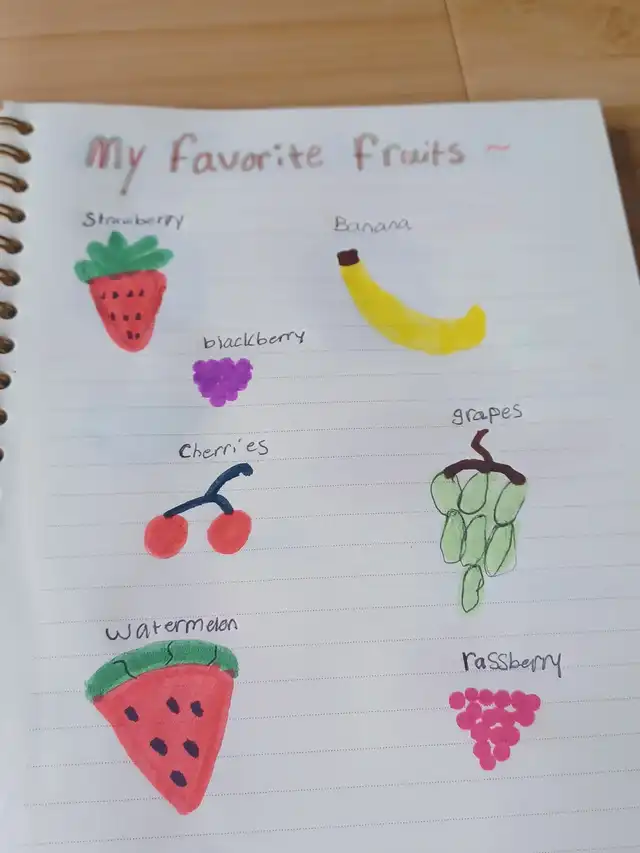 My Favorite Fruits ~
Strawberry
Banana
blackberry
grapes
Cherries
watermelon
rassberry